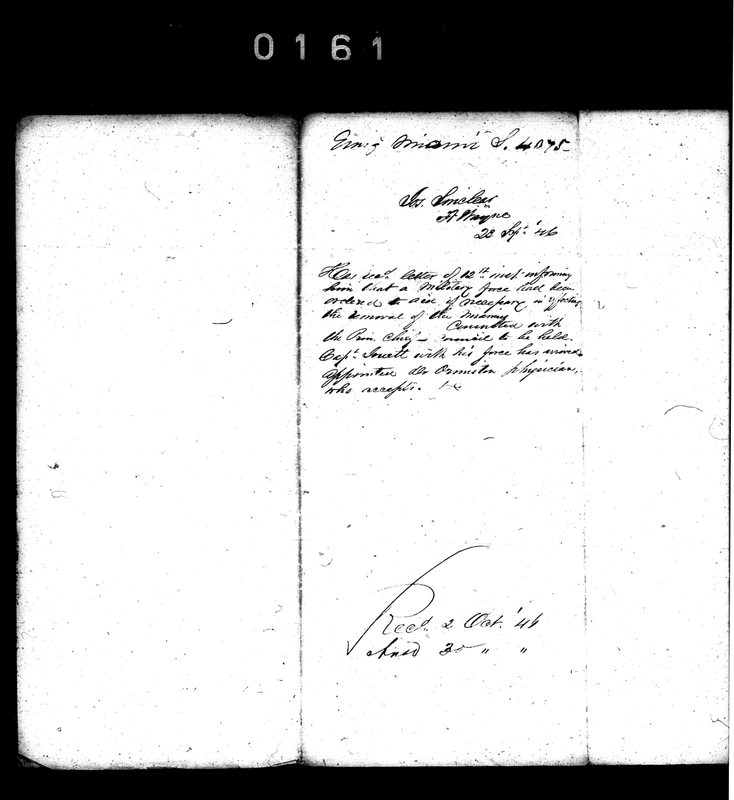 0161
Emig Miami S. 4075
Jos. Sinclear
Ft Wayne
23 Sept. '46
Has recd. letter of 12th inst. informing
him that a Military force had been
ordered to aid, if necessary in effecting
the removal of the Miamis
Consulted with
the Prin. Chief - Council to be held.
Capt. Jouett with his force has arrived.
Appointed Dr Ormiston physician,
who accepts.
Recd. 2 Oct. '46
Ansd 30 " "